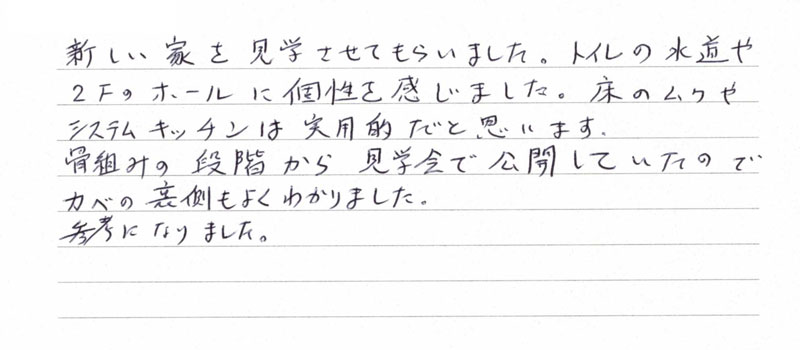 新しい家を見学させてもらいました。トイレの水道や
2Fのホールに個性を感じました。床のムクや
システムキッチンは実用的だと思います。
骨組みの段階から見学会で公開していたので
カベの裏側もよくわかりました。
参考になりました。